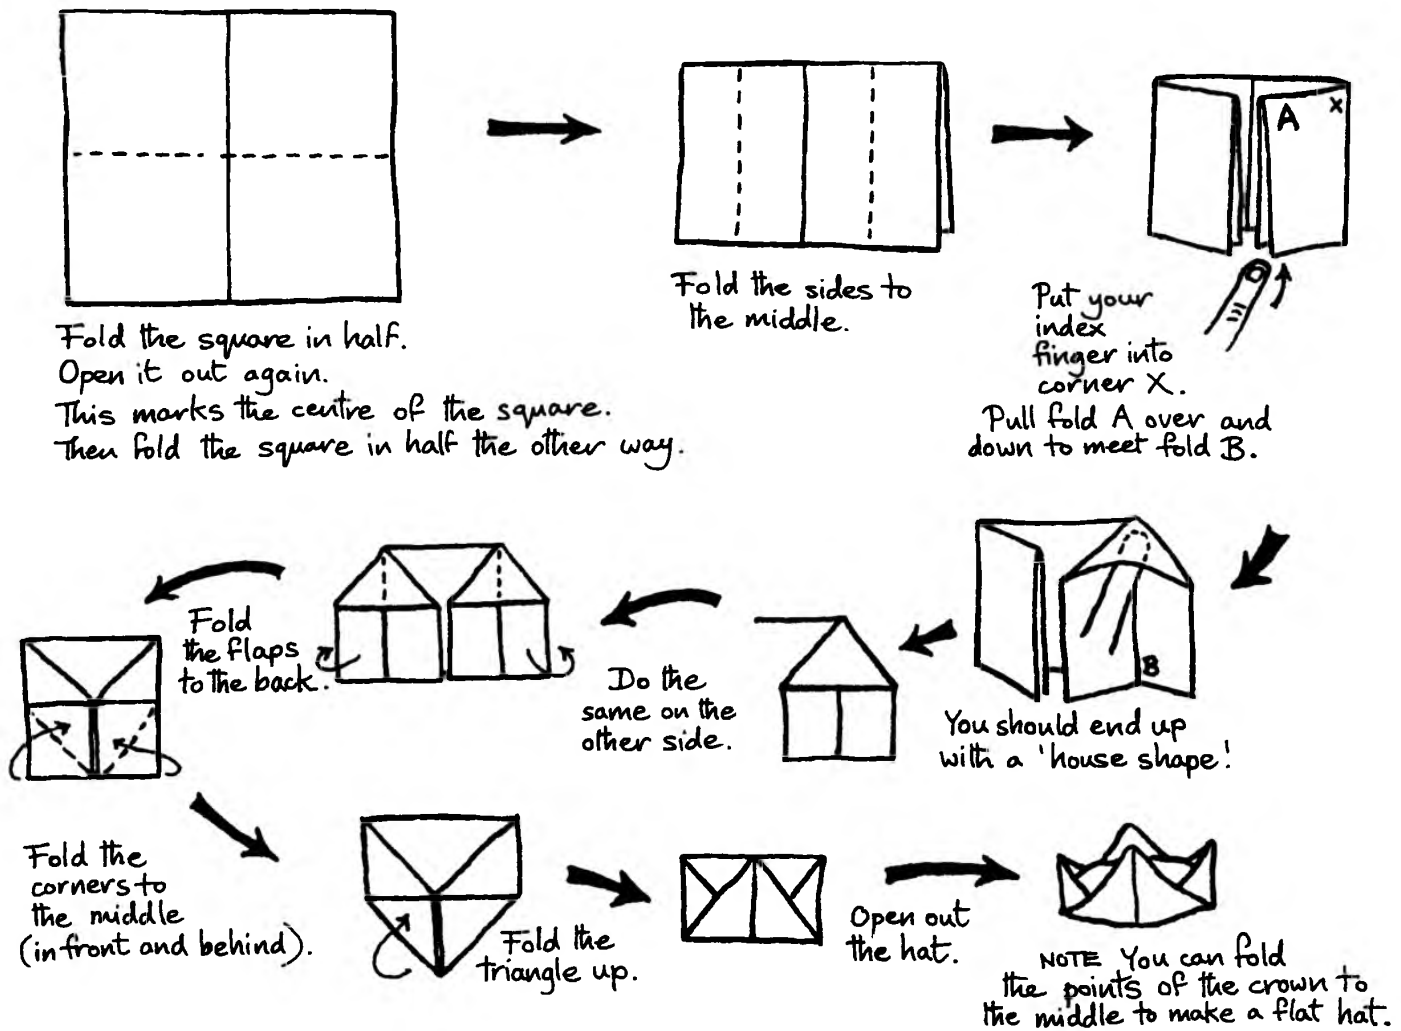 Fold the square in half.
Open it out again.
This marks the centre of the square.
Then fold the square in half the other way.
Fold the sides to
the middle.
A
x
Put your
index
finger into
corner X.
Pull fold A over and
down to meet fold B.
B
You should end up
with a 'house shape'!
Do the
same on the
other side.
Fold
the flaps
to the back.
Fold the
corners to
the middle
(in front and behind).
Fold the
triangle up.
Open out
the hat.
NOTE You can fold
the points of the crown to
the middle to make a flat hat.